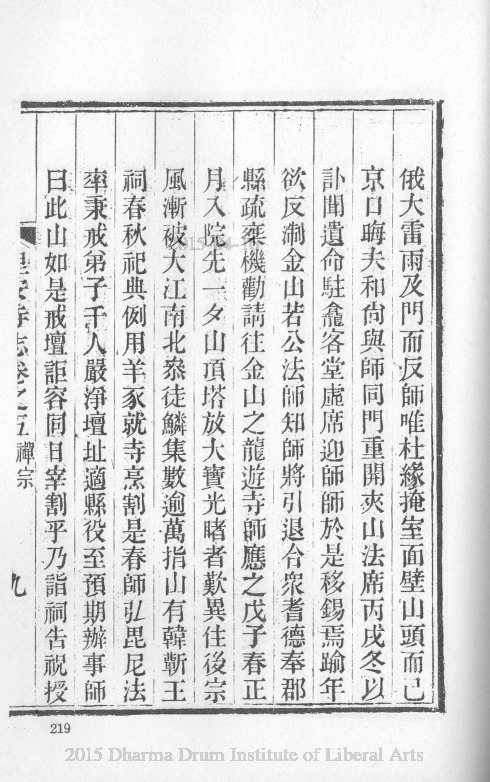 俄大雷雨及門而反師唯杜緣掩室面壁山頭而已
京口晦夫和尚與師同門重開夾山法席丙戌冬以
訃聞遺命駐龕客堂虛席迎師師於是移錫焉踰年
欲反淛金山若公法師知師將引退合眾耆德奉郡
縣疏棄機勸請往金山之龍遊寺師應之戊子春正
月入院先一夕山頂塔放大寶光睹者歎異住後宗
風漸被大江南北叅徒鱗集數逾萬指山有韓蘄王
祠春秋祀典例用羊豕就寺烹割是春師弘毘尼法
率秉戒弟子千人嚴淨壇址適縣役至預期辦事師
曰此山如是戒壇詎容同日宰割乎乃詣祠告祝授
聖安寺志卷之五 禪宗 九
219
2015 Dharma Drum Institute of Liberal Arts